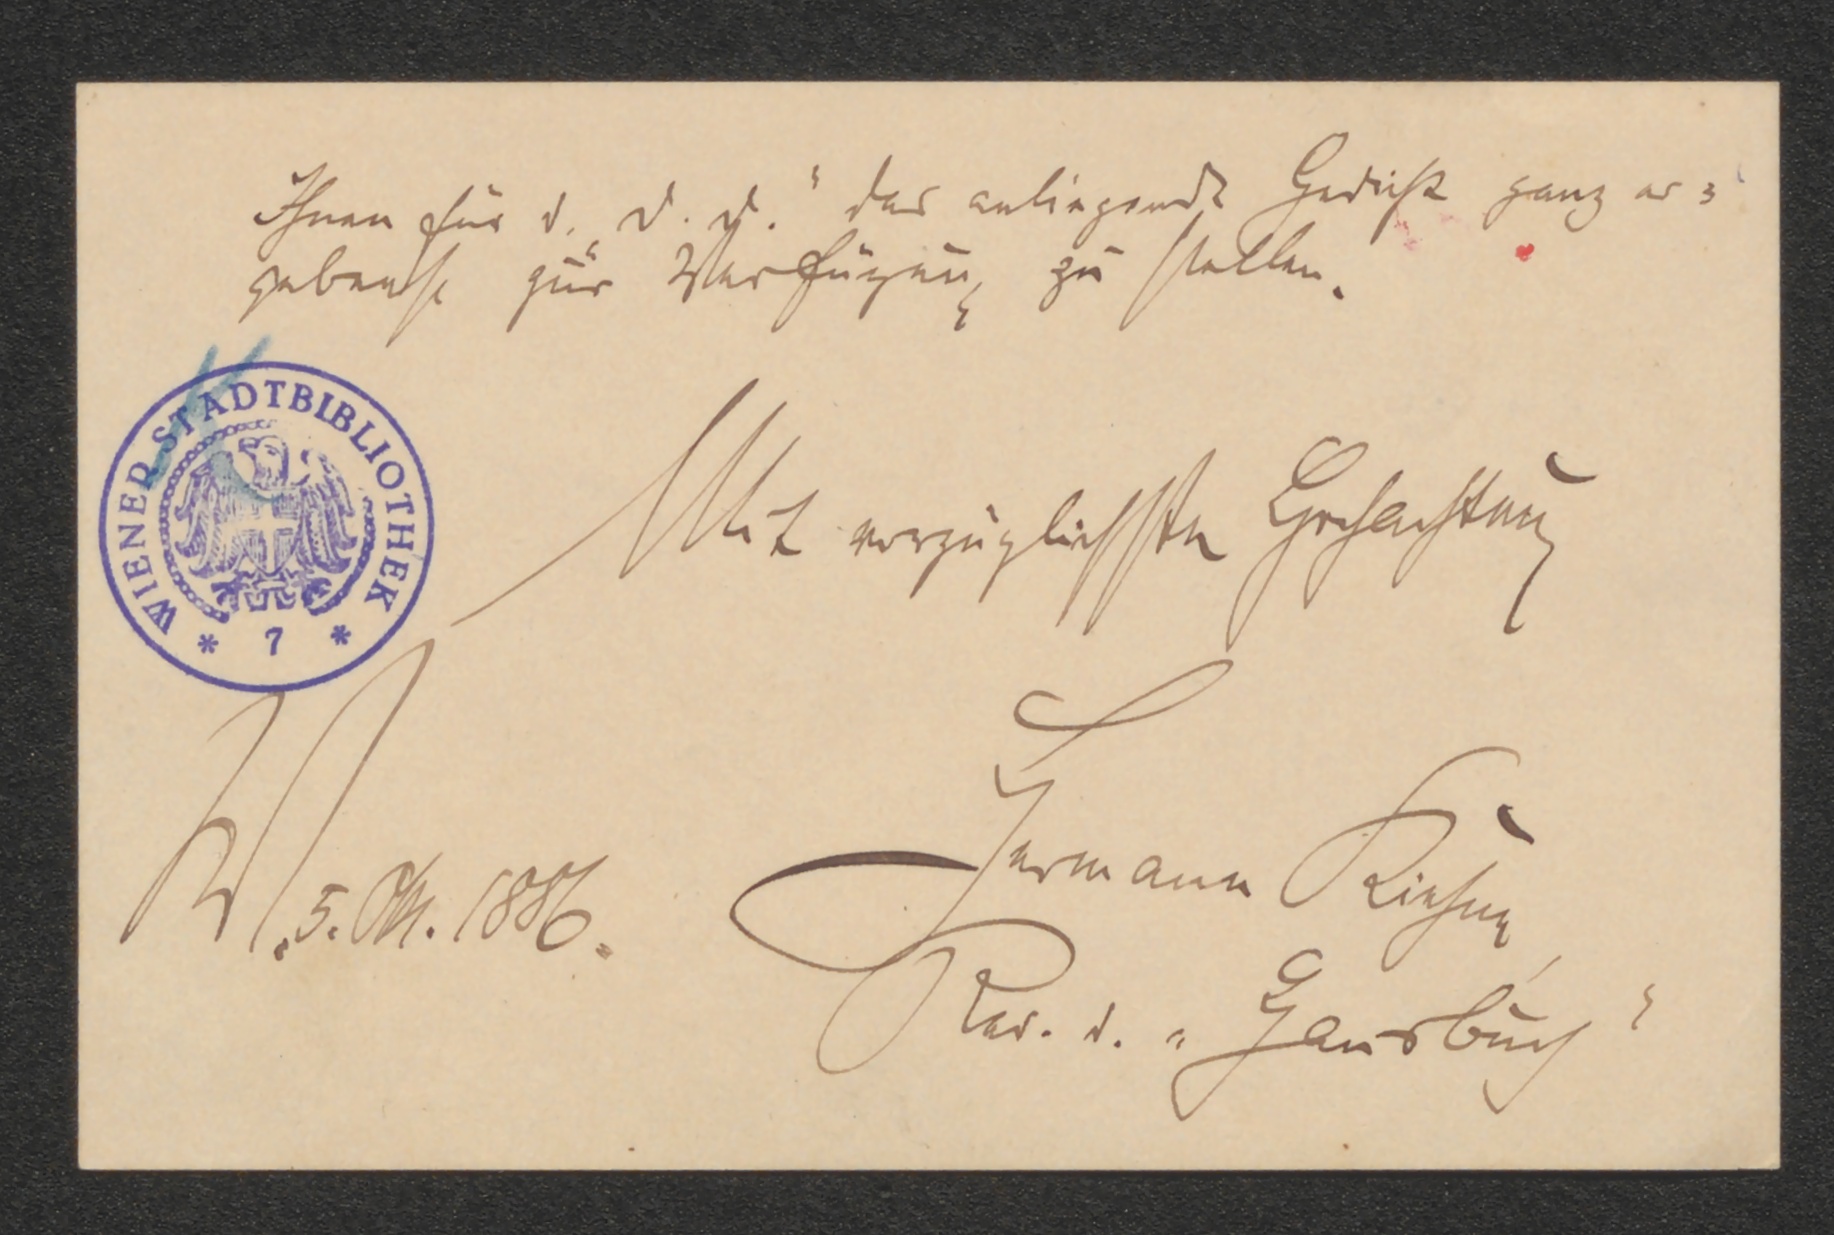 Ihnen für d. „D. D.“ das anliegende Gedicht ganz er-
gebenst zur Verfügung zu stellen.
Mit vorzüglichster Hochachtung
Hermann Kiehne
Red. d. „Hausbuch“
W. 5. Okt. 1886.
WIENER STADTBIBLIOTHEK
* 7 *